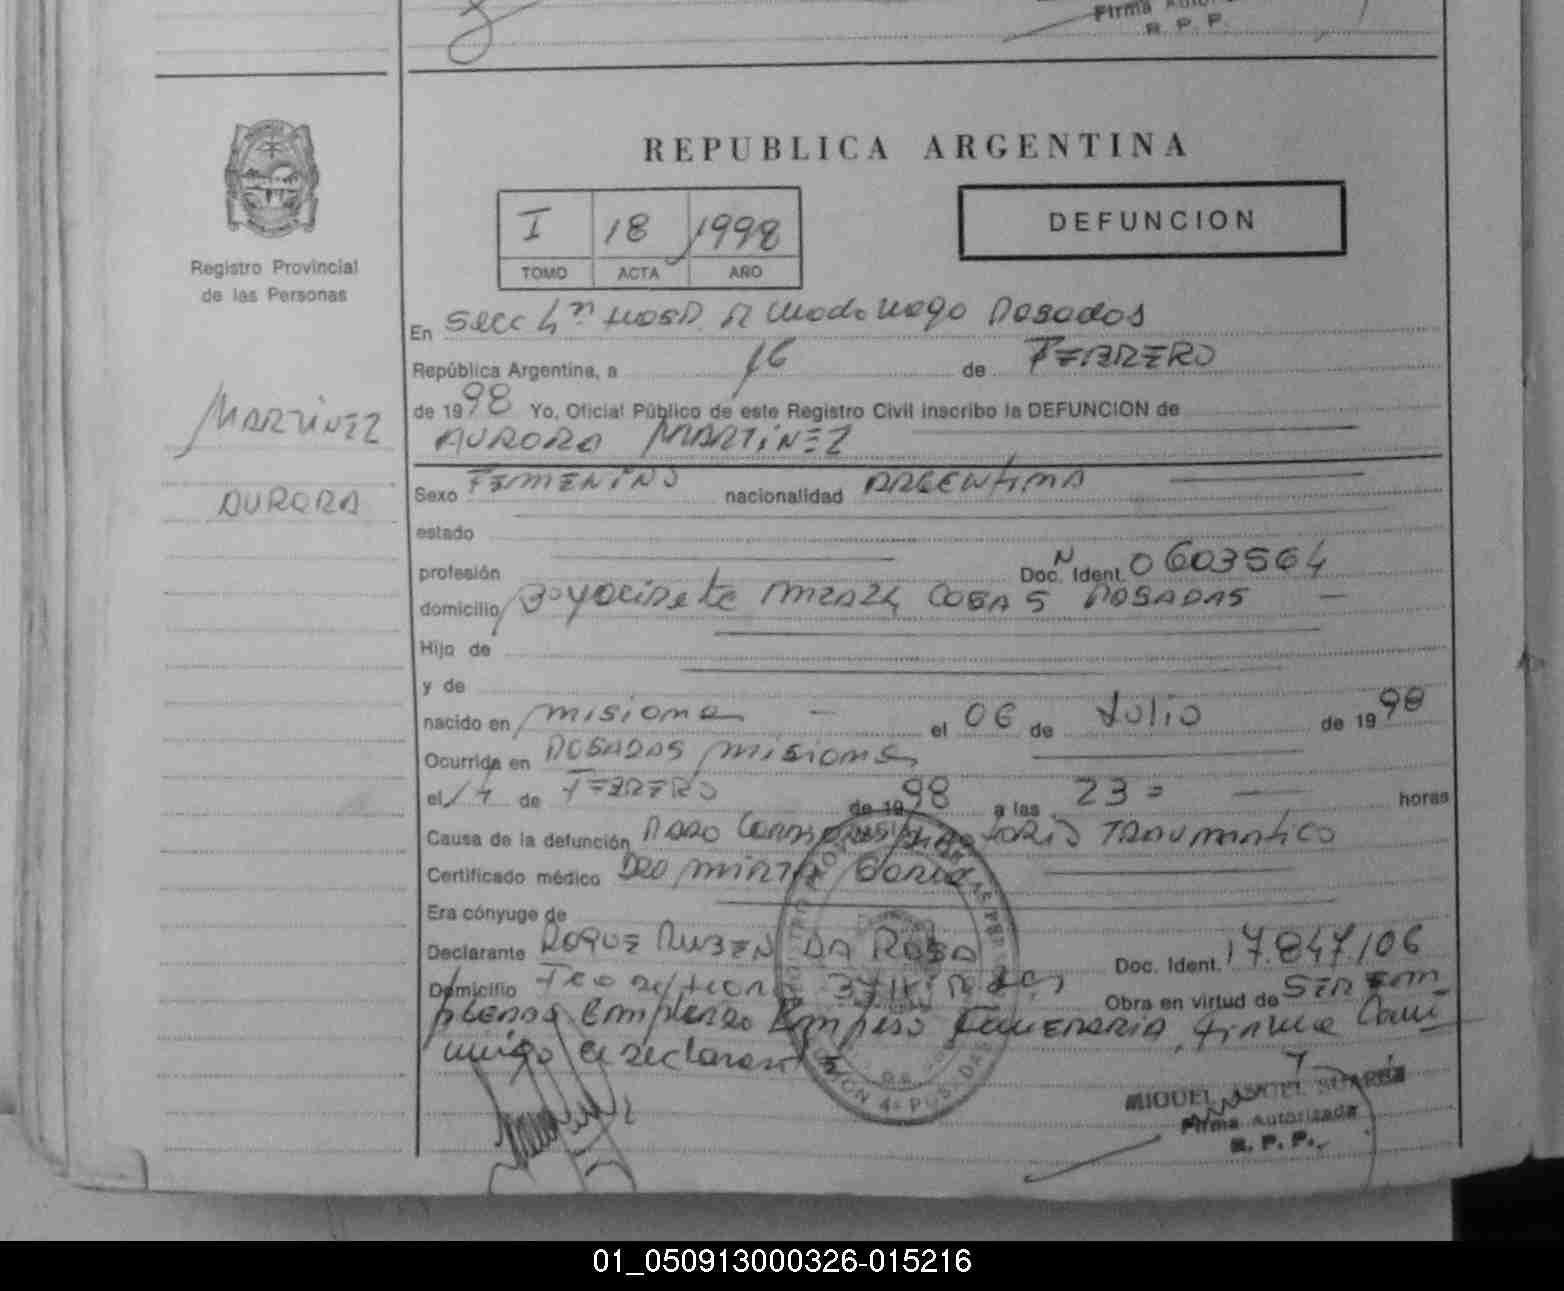 Firma Autor
R. P. P.
REPUBLICA ARGENTINA
I 18 1998
TOMO ACTA AÑO
DEFUNCION
Registro Provincial
de las Personas
MARTINEZ
AURORA
En Secc 4ª Hosp. R Madariaga Posadas
República Argentina, a 16 de FEBRERO
de 1998 Yo, Oficial Público de este Registro Civil inscribo la DEFUNCION de
AURORA MARTINEZ
Sexo FEMENINO nacionalidad ARGENTINA
estado
profesión Doc. Ident. N 0603564
domicilio COSAS POSADAS
Hijo de
y de
nacido en misiones el 06 de Julio de 1998
Ocurrida en POSADAS misiones
el 14 de FEBRERO de 1998 a las 23= horas
Causa de la defunción PARO TRAUMATICO
Certificado médico DRA MIRTA
Era cónyuge de
Declarante ROQUE RUBEN DA ROSA Doc. Ident. 17.847.106
Domicilio Obra en virtud de SER EM
Empresa FUNERARIA, firma Con
migo el declarante
MIGUEL ANGEL SUAREZ
Firma Autorizada
R. P. P.
01_050913000326-015216